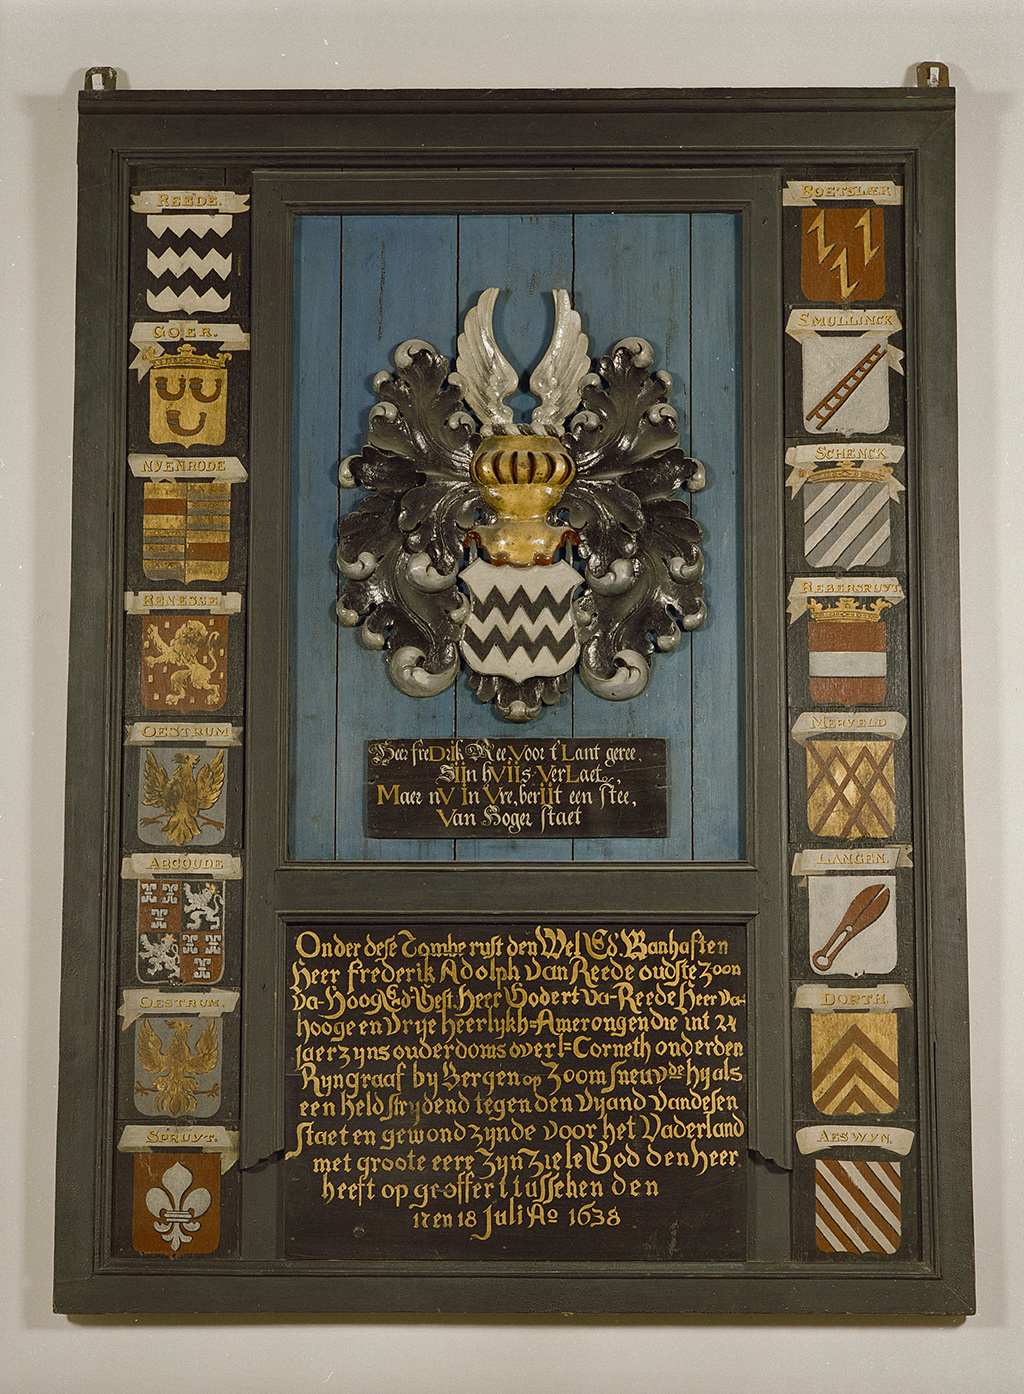 REEDE.
GOER.
NYENRODE
RENESSE
OESTRUM
ABCOUDE
OESTRUM.
SPRUYT.
BOETSLÆR
SMULLINCK
SCHENCK
REBERSRUYT
MERVELD
LANGEN.
DORTH.
AESWYN.
Heer freDrIk Ree Voor t'Lant geree.
SIIn hVIIs VerLaet,
Maer nV In Vre, berIIt een stee,
Van Hoger staet
Onder dese Tombe ryst den Wel Ed' Manhaften
Heer frederik Adolph van Reede oudste Zoon
va-Hoog Ed Gest. Heer Godert va-Reede Heer va-
hooge en vrije heerlykh=Amerongen die int 24
jaer zyns ouderdoms overl=Corneth onder den
Ryngraaf by Bergen op Zoom sneuvde hy als
een held strydend tegen den vyand van desen
staet en gewond zynde voor het Vaderland
met groote eere Zyn Ziele God den Heer
heeft op geoffert tusschen den
17 en 18 Juli Ao 1638